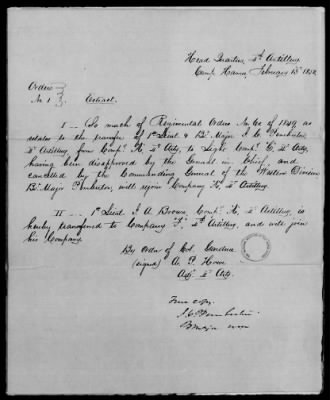 Head Quarters, 4th Artillery
Camp Hamer, February 13th 1850
Orders
No. 1
Extract.
I -- So much of Regimental Orders No. 62 of 1849 as
relates to the transfer of 1st Lieut & Bt. Major J. C. Pemberton
4th Artillery, from Comp. H, 4th Arty to Light Comp. 4th Arty,
having been disapproved by the General in Chief, and
cancelled by the Commanding General of the Western Division
Bt. Major Pemberton, will rejoin Company H, 4th Artillery.
II -- 1st Lieut. J. A. Brown, Comp. H, 4th Artillery, is
hereby transferred to Company F, 4th Artillery, and will join
his Company.
By Order of Col. Gardner
(signed) A. P. Howe
Adjt 4th Arty.
True copy.
J. C. Pemberton
Bt Major